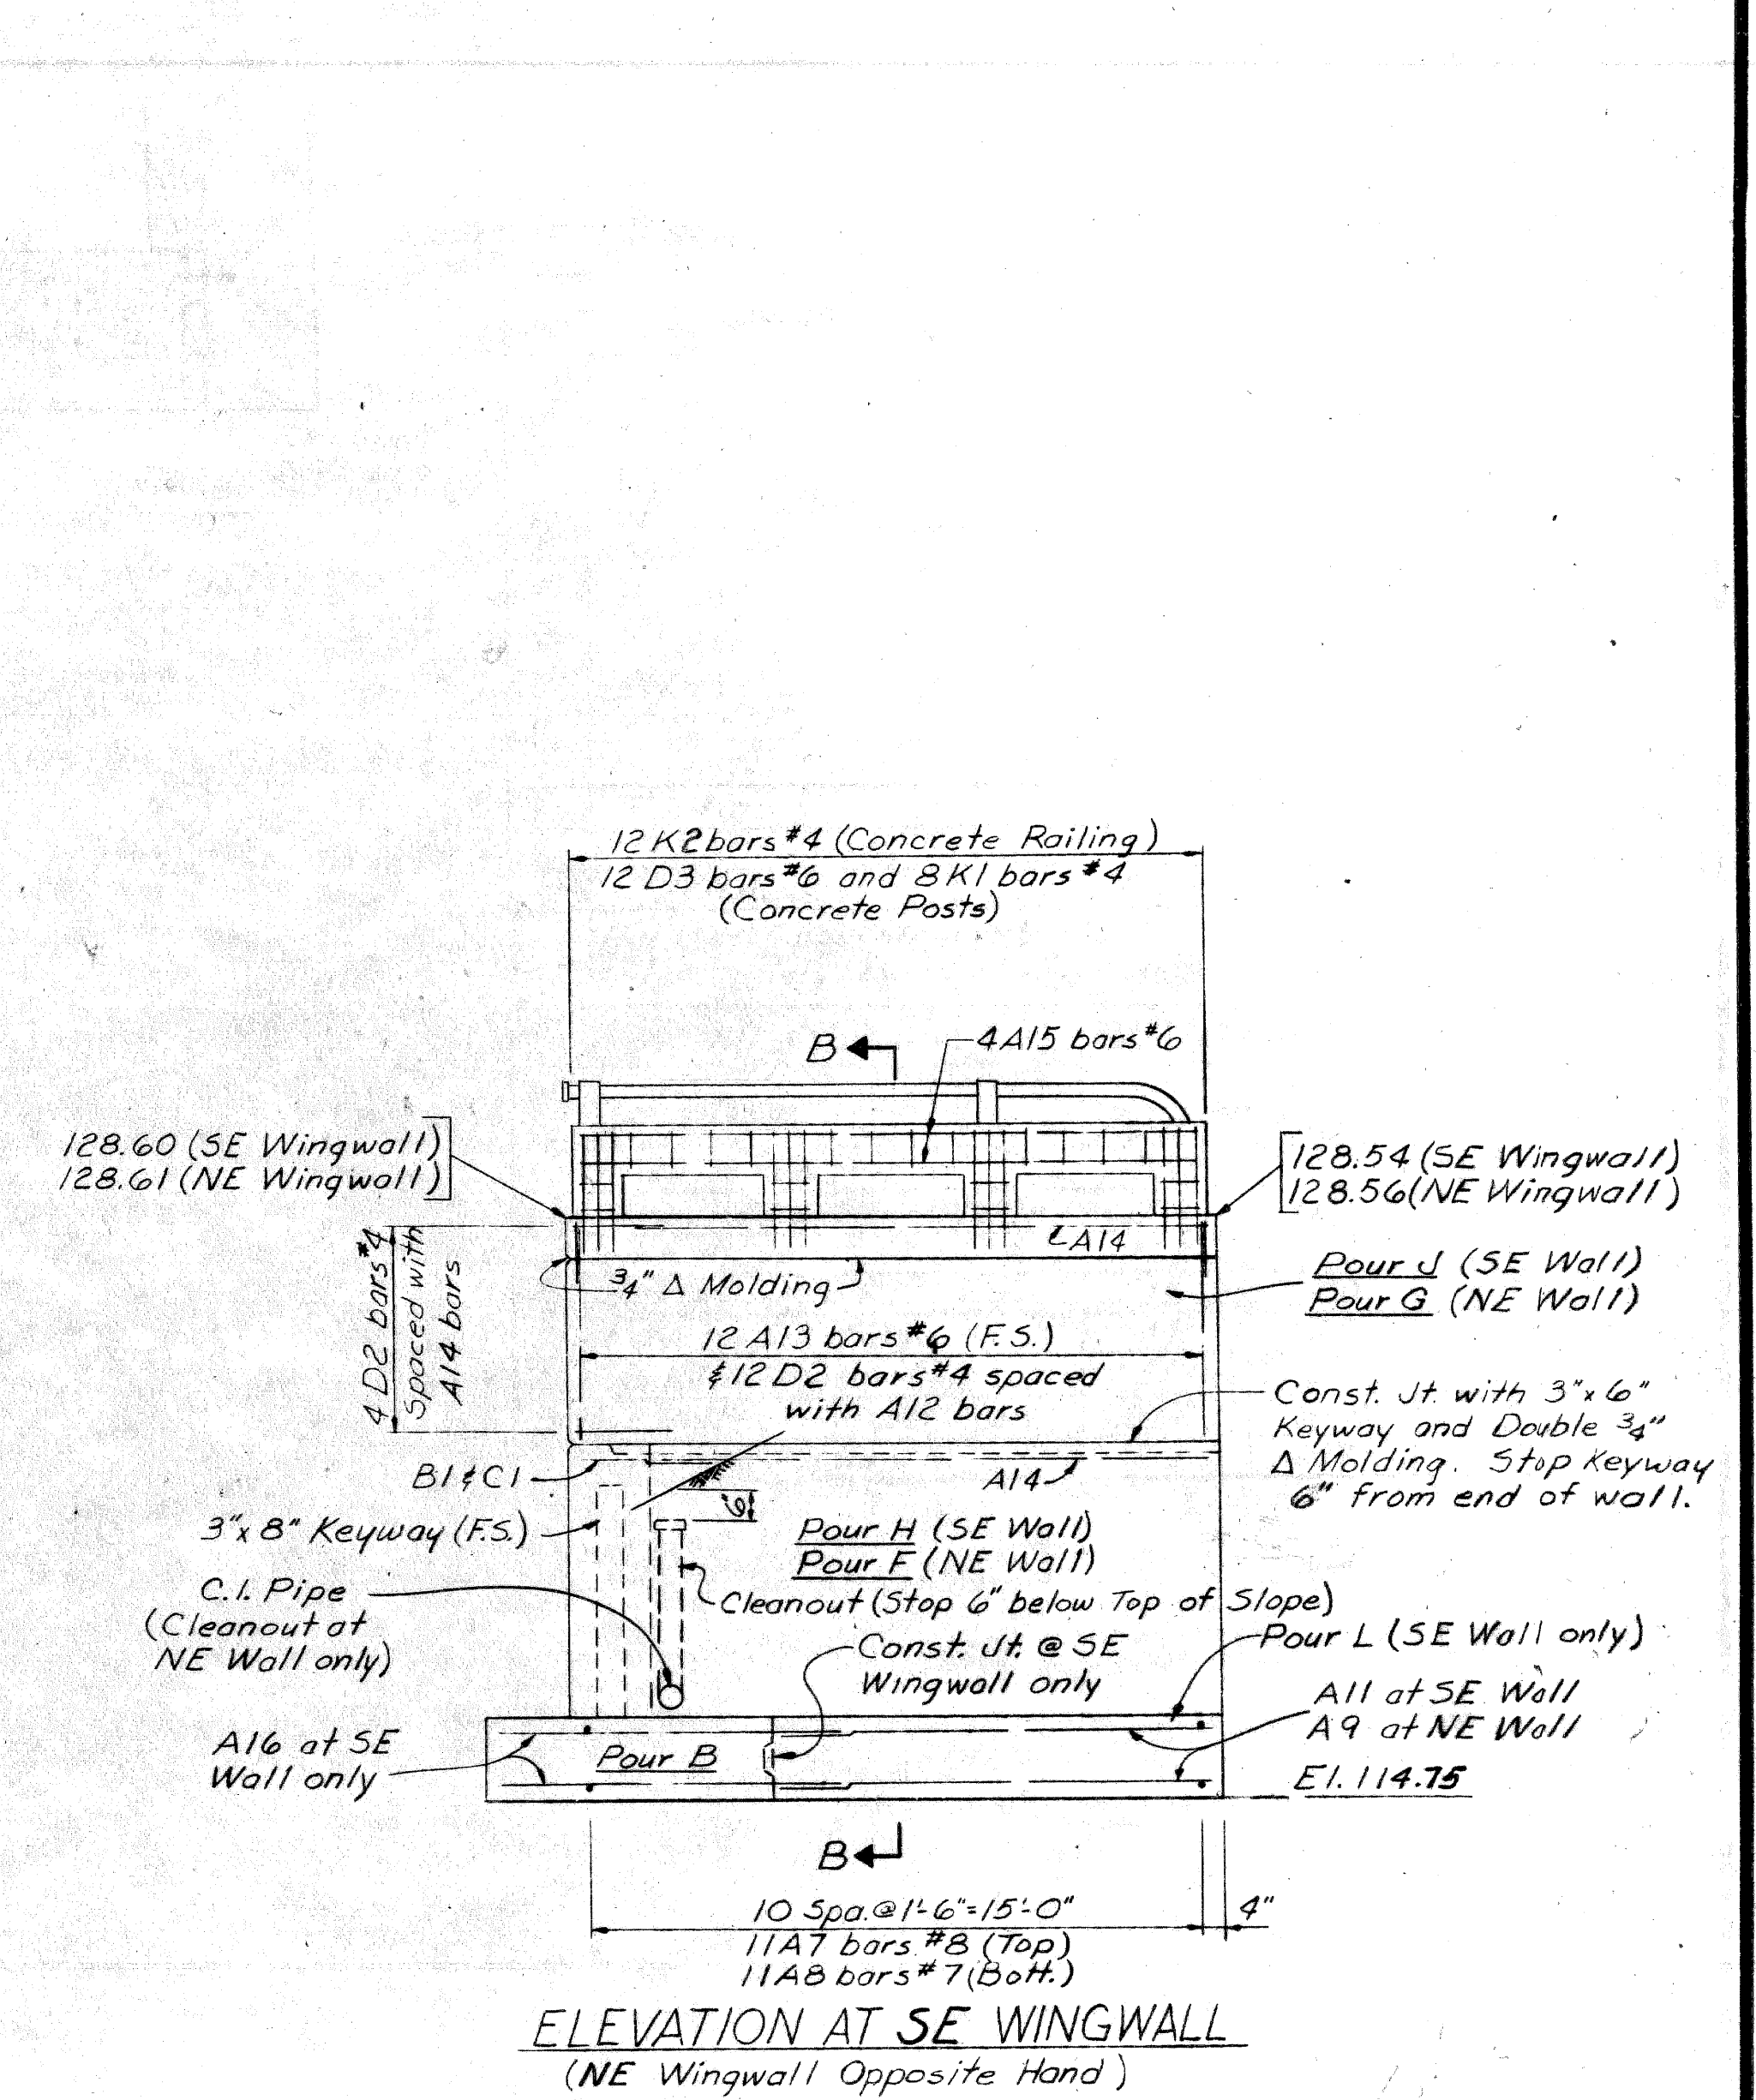 12 K2 bars #4 (Concrete Railing)
12 D3 bars #6 and 8 K1 bars #4
(Concrete Posts)
B
4 A15 bars #6
128.60 (SE Wingwall)
128.61 (NE Wingwall)
128.54 (SE Wingwall)
128.56 (NE Wingwall)
A14
4 D2 bars #4
Spaced with
A14 bars
3/4" Δ Molding
Pour J (SE Wall)
Pour G (NE Wall)
12 A13 bars #6 (F.S.)
& 12 D2 bars #4 spaced
with A12 bars
Const. Jt. with 3" x 6"
Keyway and Double 3/4"
Δ Molding. Stop Keyway
6" from end of wall.
B1 & C1
A14
6"
3" x 8" Keyway (F.S.)
Pour H (SE Wall)
Pour F (NE Wall)
C.I. Pipe
(Cleanout at
NE Wall only)
Cleanout (Stop 6" below Top of Slope)
Const. Jt. @ SE
Wingwall only
Pour L (SE Wall only)
A11 at SE Wall
A9 at NE Wall
A16 at SE
Wall only
Pour B
El. 114.75
B
10 Spa. @ 1'-6" = 15'-0"
4"
11 A7 bars #8 (Top)
11 A8 bars #7 (Bott.)
ELEVATION AT SE WINGWALL
(NE Wingwall Opposite Hand)